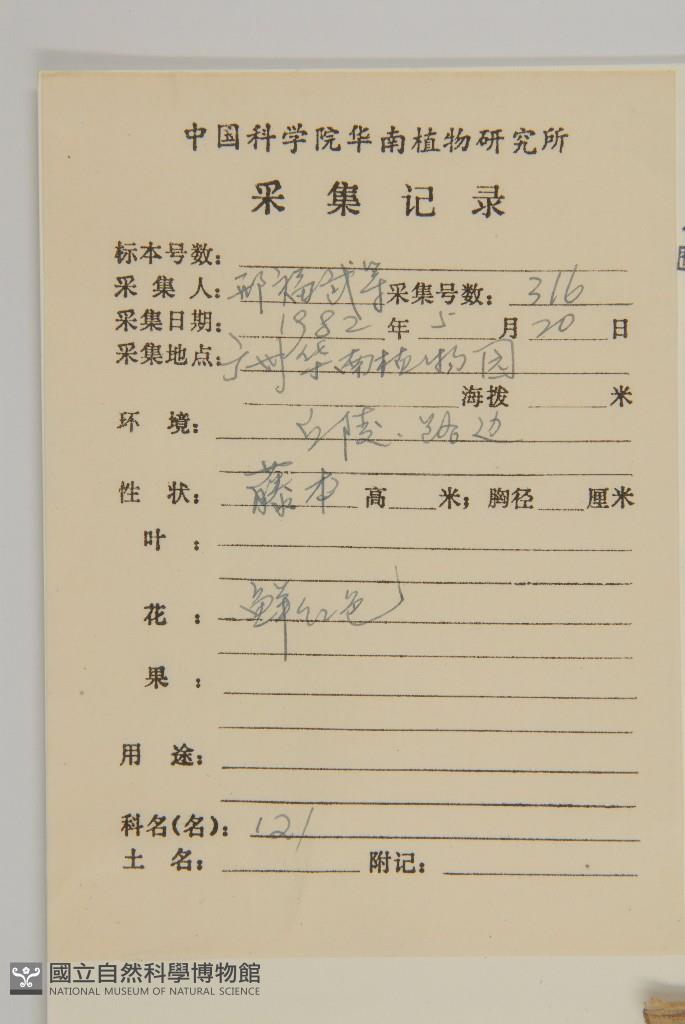 中国科学院华南植物研究所
采集记录
标本号数：
采集人：邢福武等 采集号数：316
采集日期：1982年5月20日
采集地点：广州华南植物园
海拨 米
环境：丘陵.路边
性状：藤本 高 米；胸径 厘米
叶：
花：鲜红色
果：
用途：
科名(名)：121
土名： 附记：
國立自然科學博物館
NATIONAL MUSEUM OF NATURAL SCIENCE